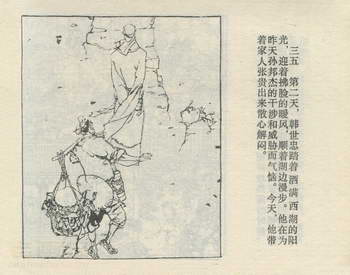 三五 第二天，韩世忠踏着洒满西湖的阳
光，迎着拂脸的暖风，顺着湖边漫步。他在为
昨天孙邦杰的干涉和威胁而气恼。今天，他带
着家人张贵出来散心解闷。